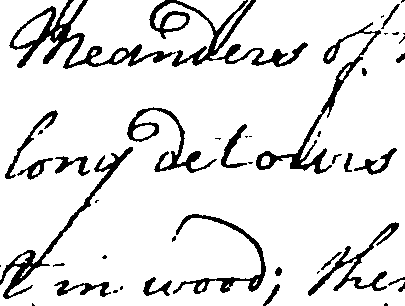 Meanders of
long detours
in wood; then